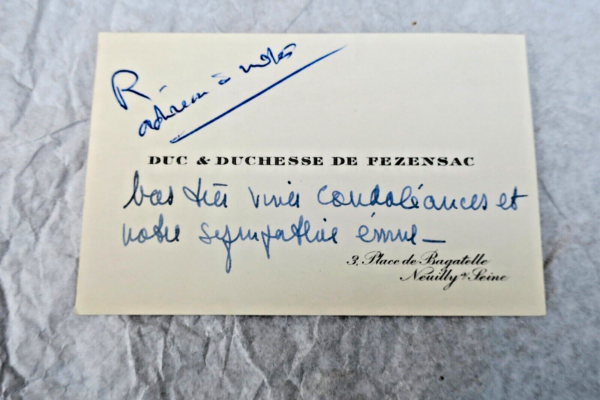 R.
adresse à noter
DUC & DUCHESSE DE FEZENSAC
Nos très vives condoléances et
notre sympathie émue_
3, Place de Bagatelle
Neuilly s/ Seine